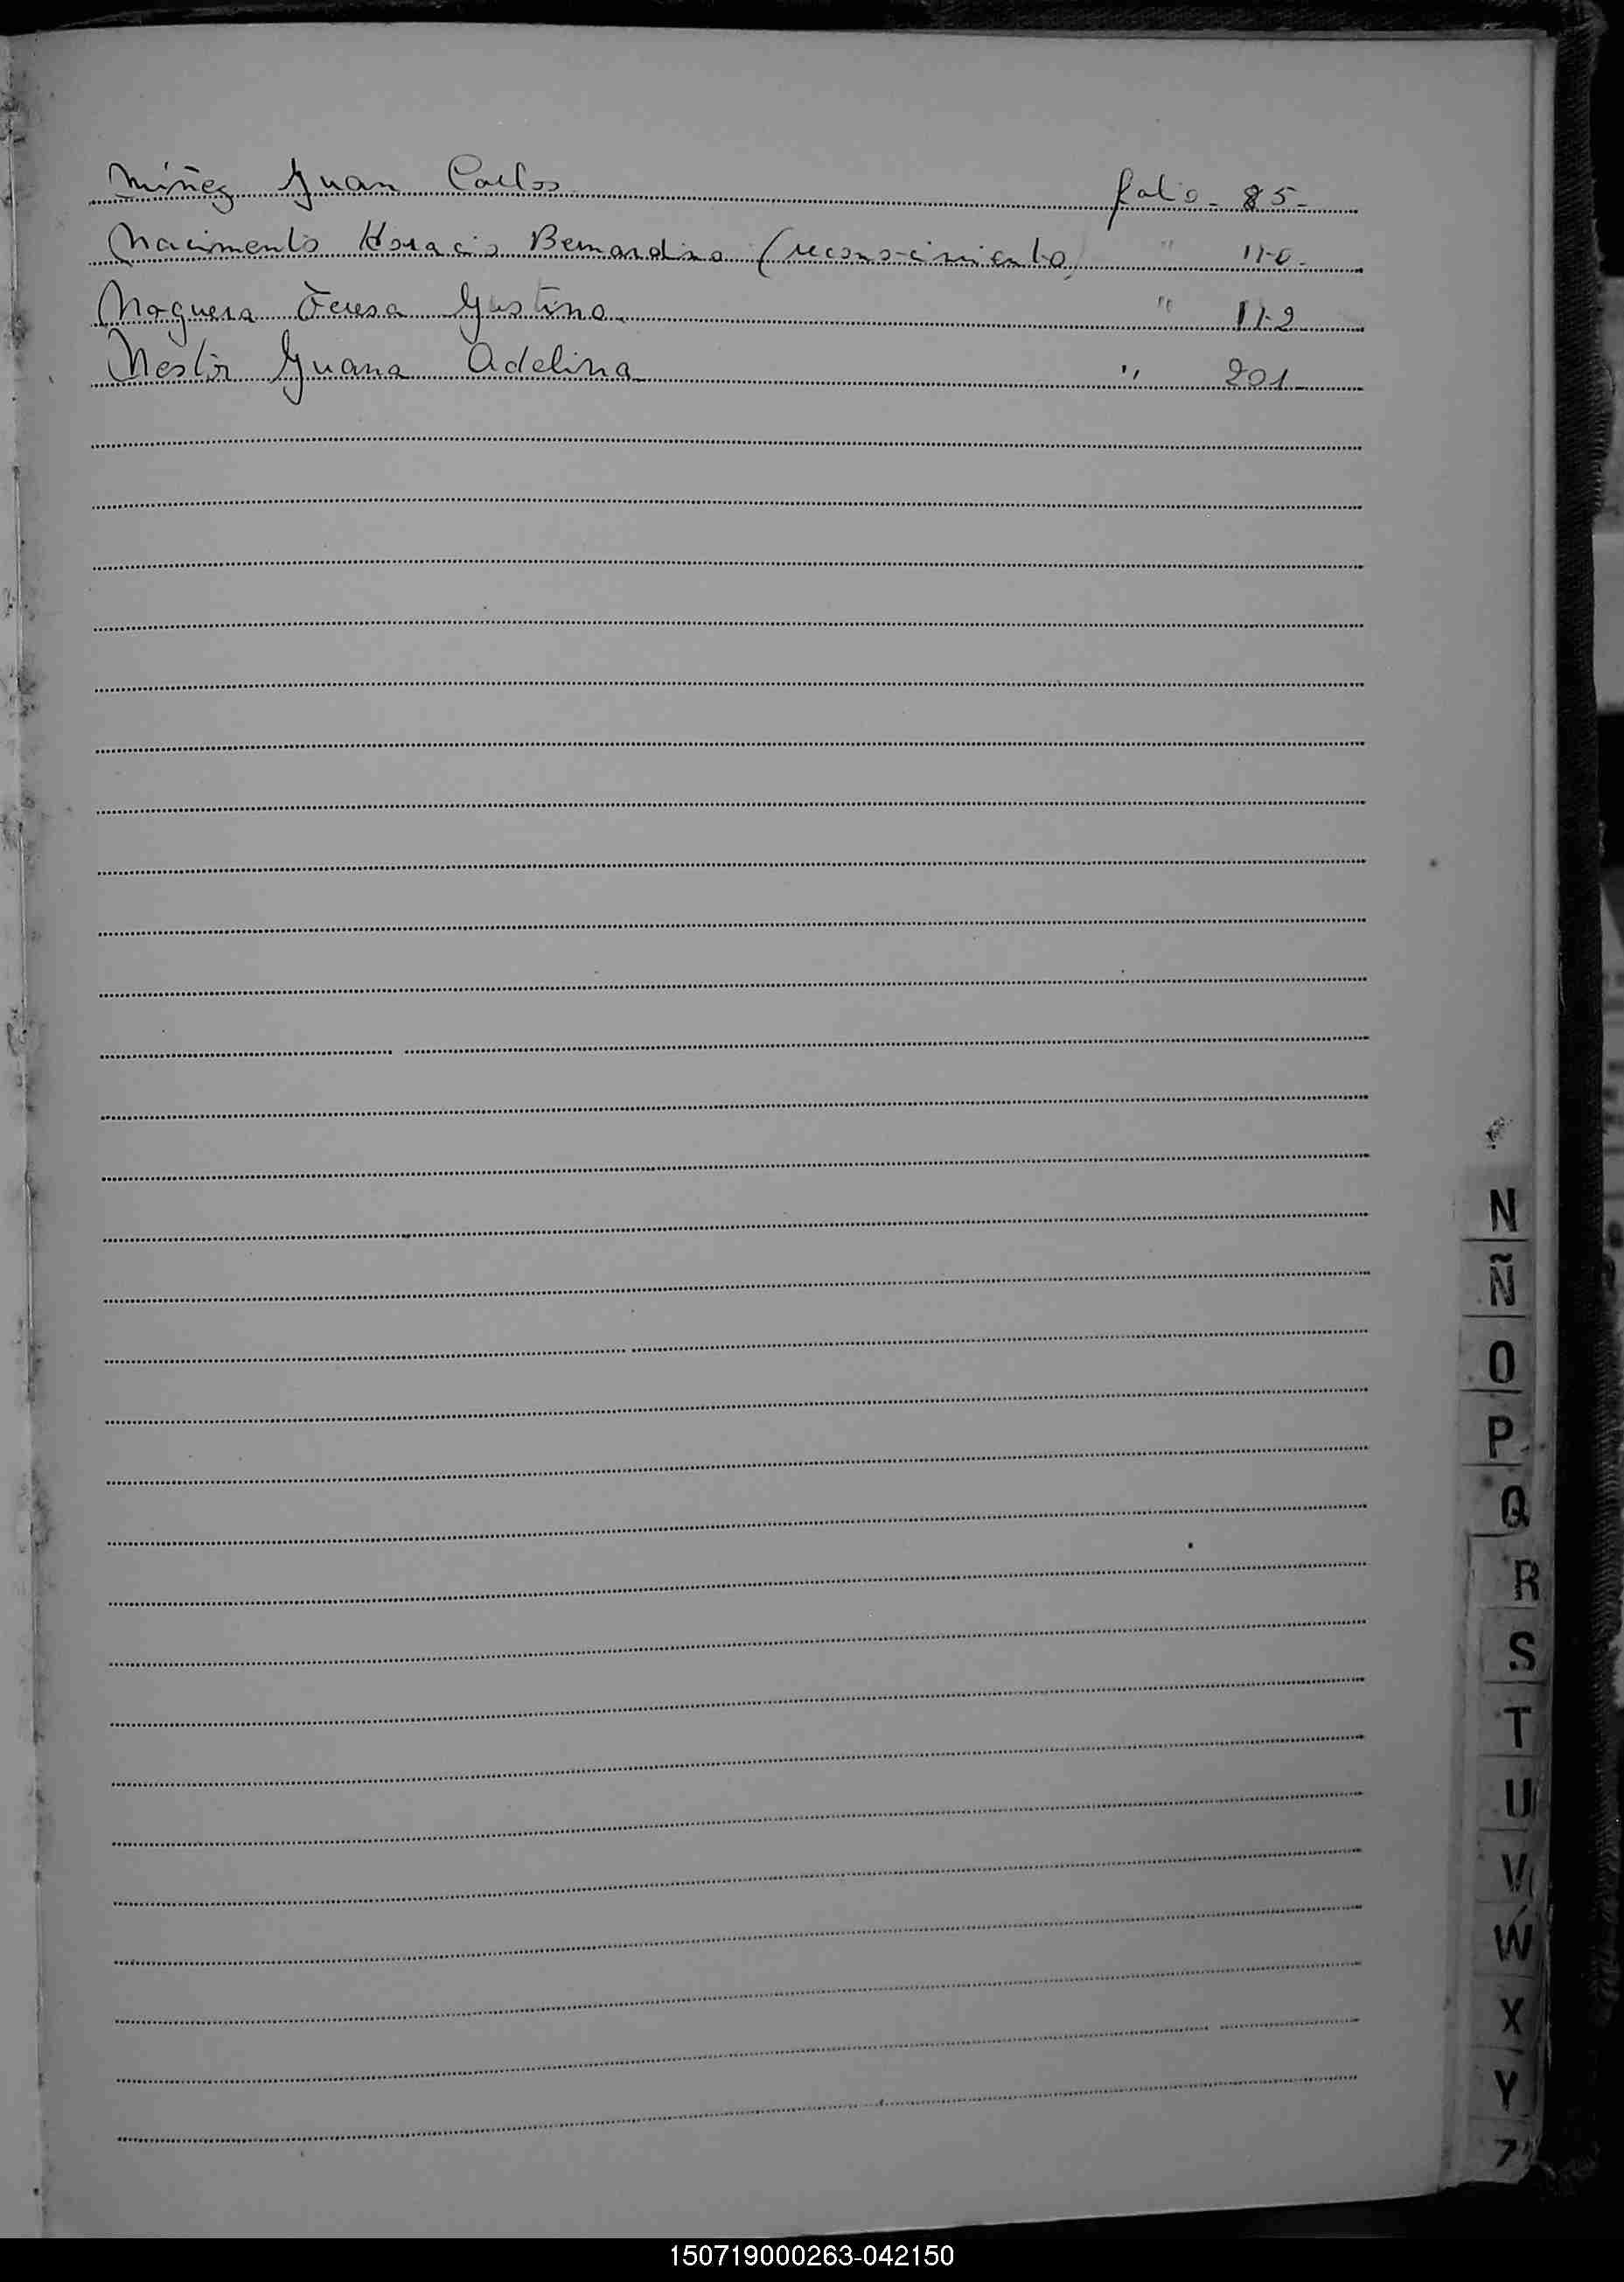 Niñez Juan Carlos folio - 85 -
Nacimento Horacio Bernardino (reconocimiento) " 110 -
Noguera Teresa Justina " 112
Nestor Juana Adelina " 201
N
Ñ
O
P
Q
R
S
T
U
V
W
X
Y
Z
150719000263-042150